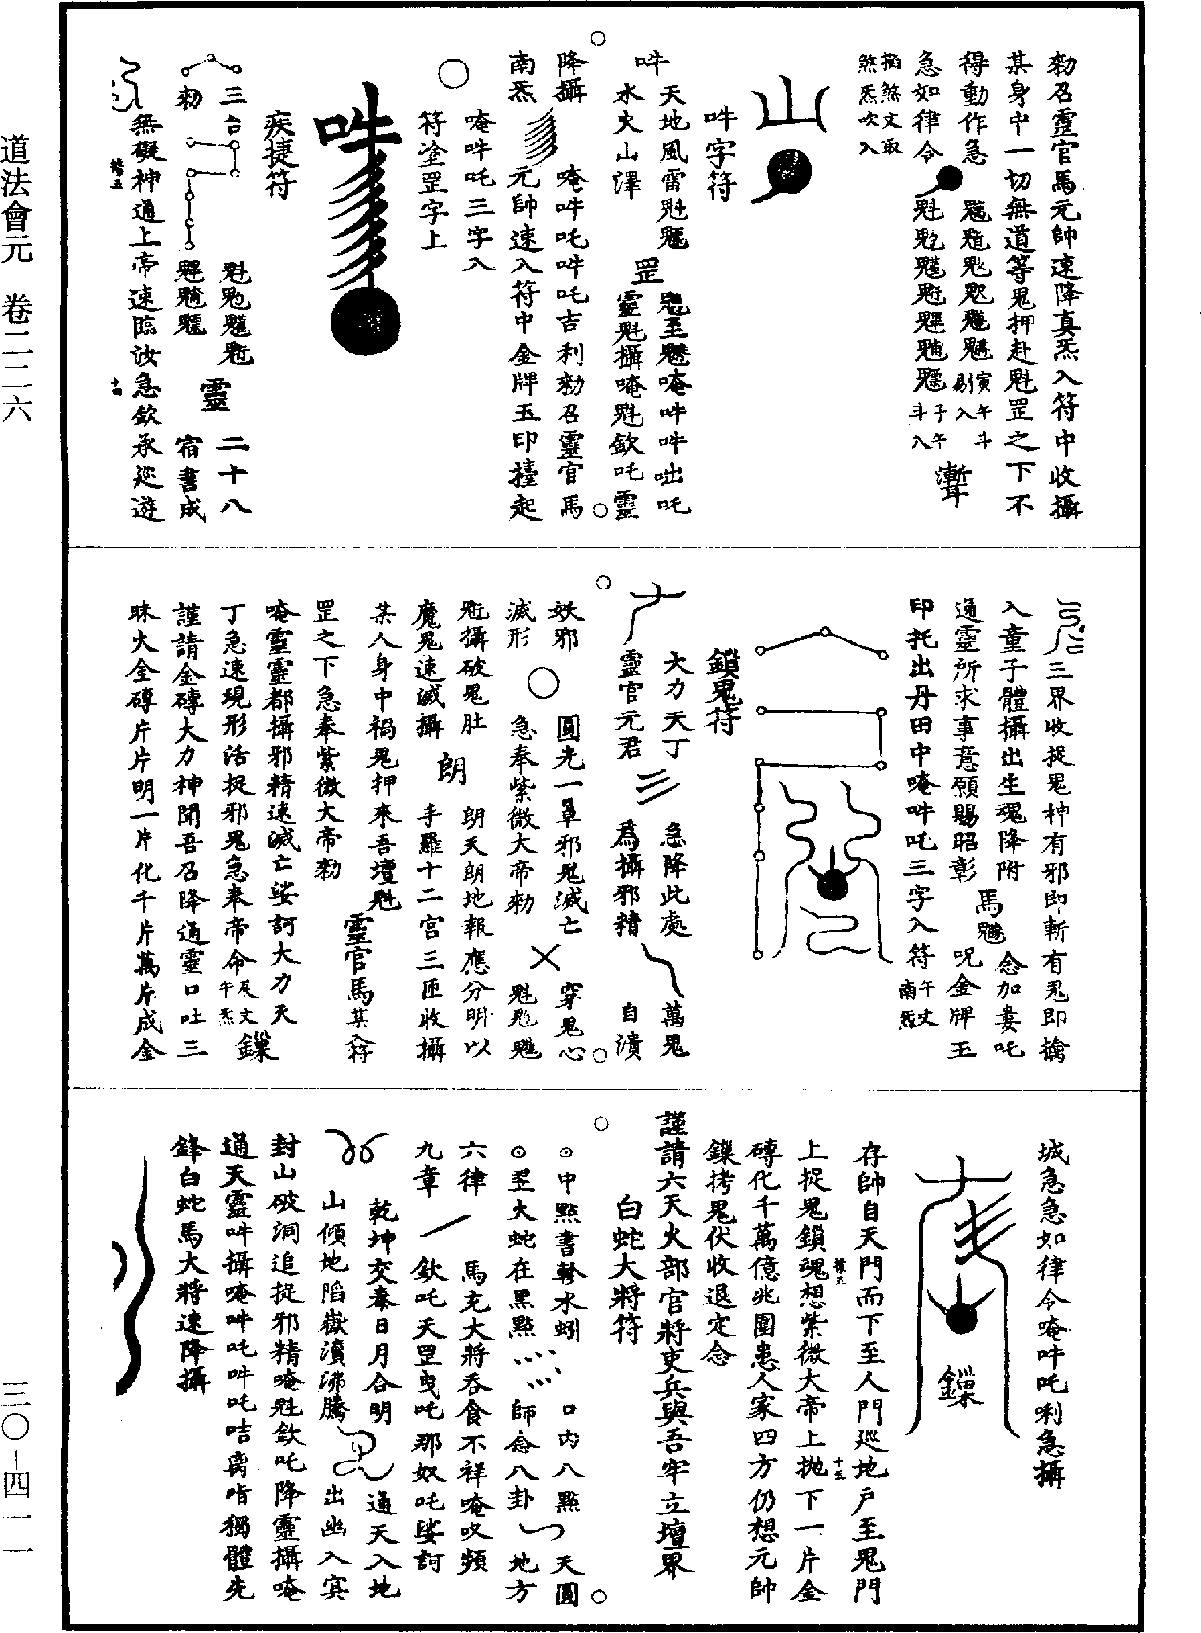 勑召靈官馬元帥速降真炁入符中收攝
某身中一切無道等鬼押赴魁罡之下不
得動作急
急如律令
寅午斗
剔入
子午
斗入
指煞文取
煞炁吹入
吽字符
吽
天地風雷魁
水火山澤
罡
靈魁攝唵魁欽吒靈
降攝
南炁
唵吽吒吽吒吉利勑召靈官馬
元帥速入符中金牌玉印擡起
唵吽吒三字入
符塗罡字上
吽
疾捷符
三台
勑
靈
二十八
宿書成
無礙神通上帝速臨汝急欽承巡遊
三界收捉鬼神有邪即斬有鬼即擒
入童子體攝出生魂降附
通靈所求事意願賜昭彰
馬
念加婁吒
呪金牌玉
印托出丹田中唵吽吒三字入符
午文
南炁
鎖鬼符
大力天丁
靈官元君
急降此處
為攝邪精
萬鬼
自潰
妖邪
滅形
圓光一罩邪鬼滅亡
急奉紫微大帝勑
穿鬼心
攝破鬼肚
魔鬼速滅攝
朗
朗天朗地報應分明以
手羅十二宮三匝收攝
某人身中禍鬼押來吾壇魁
罡之下急奉紫微大帝勑
靈官馬
某入符
唵靈靈都攝邪精速滅亡娑訶大力天
丁急速現形活捉邪鬼急奉帝命
及文
午炁
鏁
謹請金磚大力神聞吾召降通靈口吐三
昧火金磚片片明一片化千片萬片成金
城急急如律令唵吽吒唎急攝
鏁
存帥自天門而下至人門巡地戶至鬼門
上捉鬼鎖魂想紫微大帝上拋下一片金
磚化千萬億兆圍患人家四方仍想元帥
鏁拷鬼伏收退定念
謹請六天火部官將吏兵與吾牢立壇界
白蛇大將符
中點書
水蚓
火蛇在黑點
口內八點
師念八卦
天圓
地方
六律
九章
馬充大將吞食不祥唵吹頻
欽吒天罡曳吒那奴吒娑訶
乾坤交泰日月合明
山傾地陷嶽瀆沸騰
通天入地
出幽入冥
封山破洞追捉邪精唵魁欽吒降靈攝唵
通天靈吽攝唵吽吒吽吒咭唷獨體先
鋒白蛇馬大將速降攝
道法會元 卷二二六
三〇-四一一